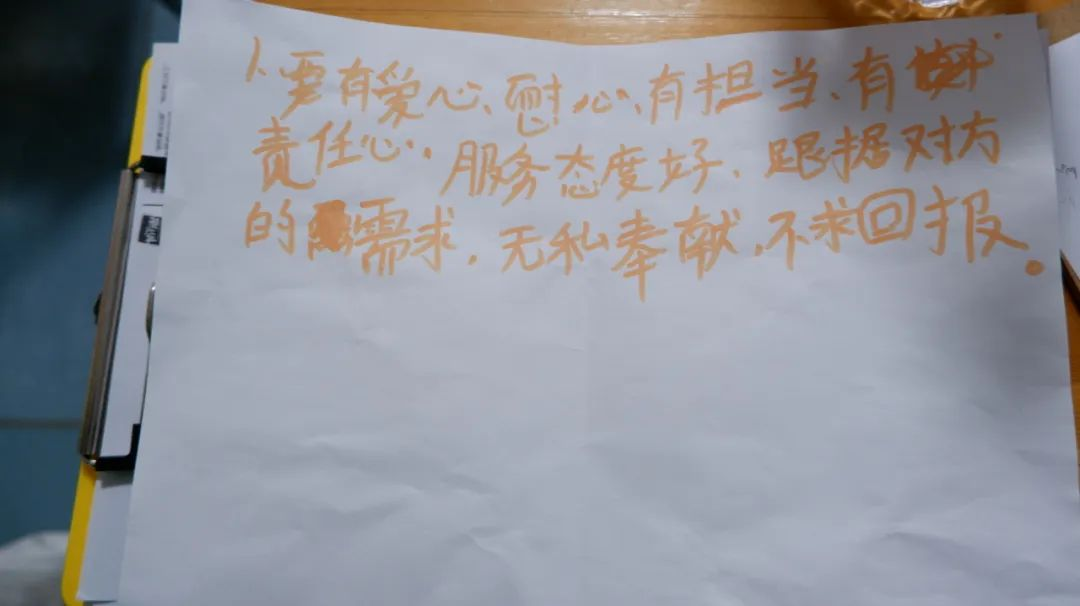 1.要有爱心、耐心、有担当、有
责任心，服务态度好、跟据对方
的需求，无私奉献，不求回报。